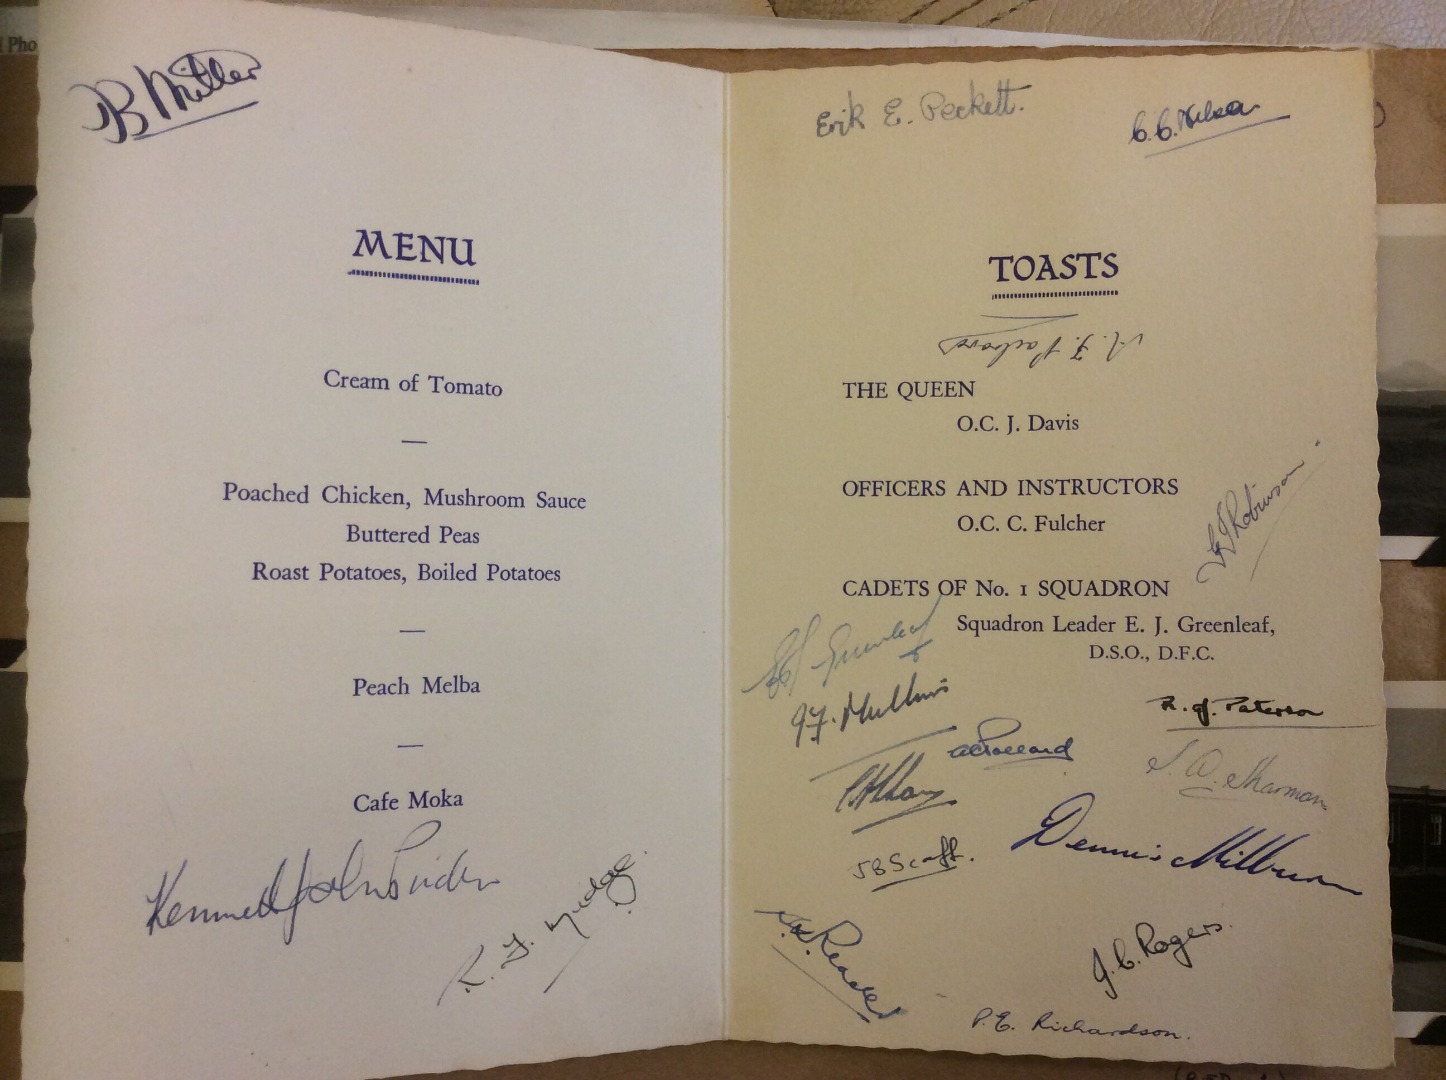 Pho
B Miller
MENU
Cream of Tomato
—
Poached Chicken, Mushroom Sauce
Buttered Peas
Roast Potatoes, Boiled Potatoes
—
Peach Melba
—
Cafe Moka
Kenneth John
R. J.
Erik E. Peckett.
C. C.
TOASTS
THE QUEEN
O.C. J. Davis
OFFICERS AND INSTRUCTORS
O.C. C. Fulcher
Robinson.
CADETS OF No. 1 SQUADRON
Squadron Leader E. J. Greenleaf,
D.S.O., D.F.C.
EJ Greenleaf
Mullins
R. J. Paterson
S. D. Sharman
Dennis Milburn
J B Scaff.
Reader
J. C. Rogers.
P. E. Richardson.